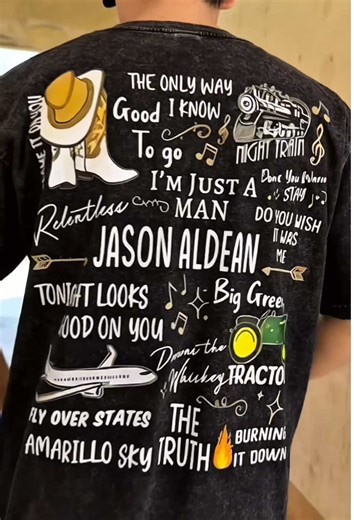 THE ONLY WAY
Good I KNOW
To go
IT ON YOU
NIGHT TRAIN
I'M JUST A
MAN
Done You Wanna
STAY
Relentless
DO YOU WISH
IT WAS
ME
JASON ALDEAN
TONIGHT LOOKS
GOOD ON YOU
Big Green
TRACTO
Down the
Whiskey
FLY OVER STATES
AMARILLO SKY
THE
TRUTH
BURNING
IT DOWN